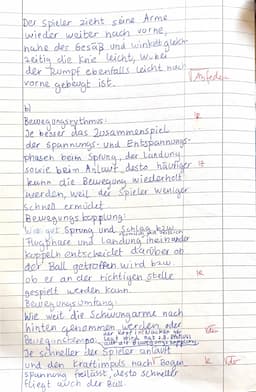 Der Spieler zieht seine Arme
wieder weiter nach vorne,
nahe des Gesäß und winkelt gleich-
zeitig die Knie leicht, wobei
der Rumpf ebenfalls leicht nach
vorne gebeugt ist.
b)
Bewegungsrhythmus:
Je besser das Zusammenspiel
der Spannungs- und Entspannungs-
phasen beim Sprung, der Landung
sowie beim Anlauf, desto häufiger
kann die Bewegung wiederholt
werden, weil der Spieler weniger
schnell ermüdet
Bewegungskopplung:
Wie gut Sprung und Schlag bzw.
Flugphase und Landung ineinander
koppeln entscheidet darüber ob
der Ball getroffen wird bzw.
ob er an der richtigen Stelle
gespielt werden kann.
Bewegungsumfang:
Wie weit die Schwungarme nach
hinten genommen werden oder
der Kopf
Bewegungstempo:
Je schneller der Spieler anläuft
und den Kraftimpuls nach Bogen
spannung gelöst, desto schneller
fliegt auch der Ball.